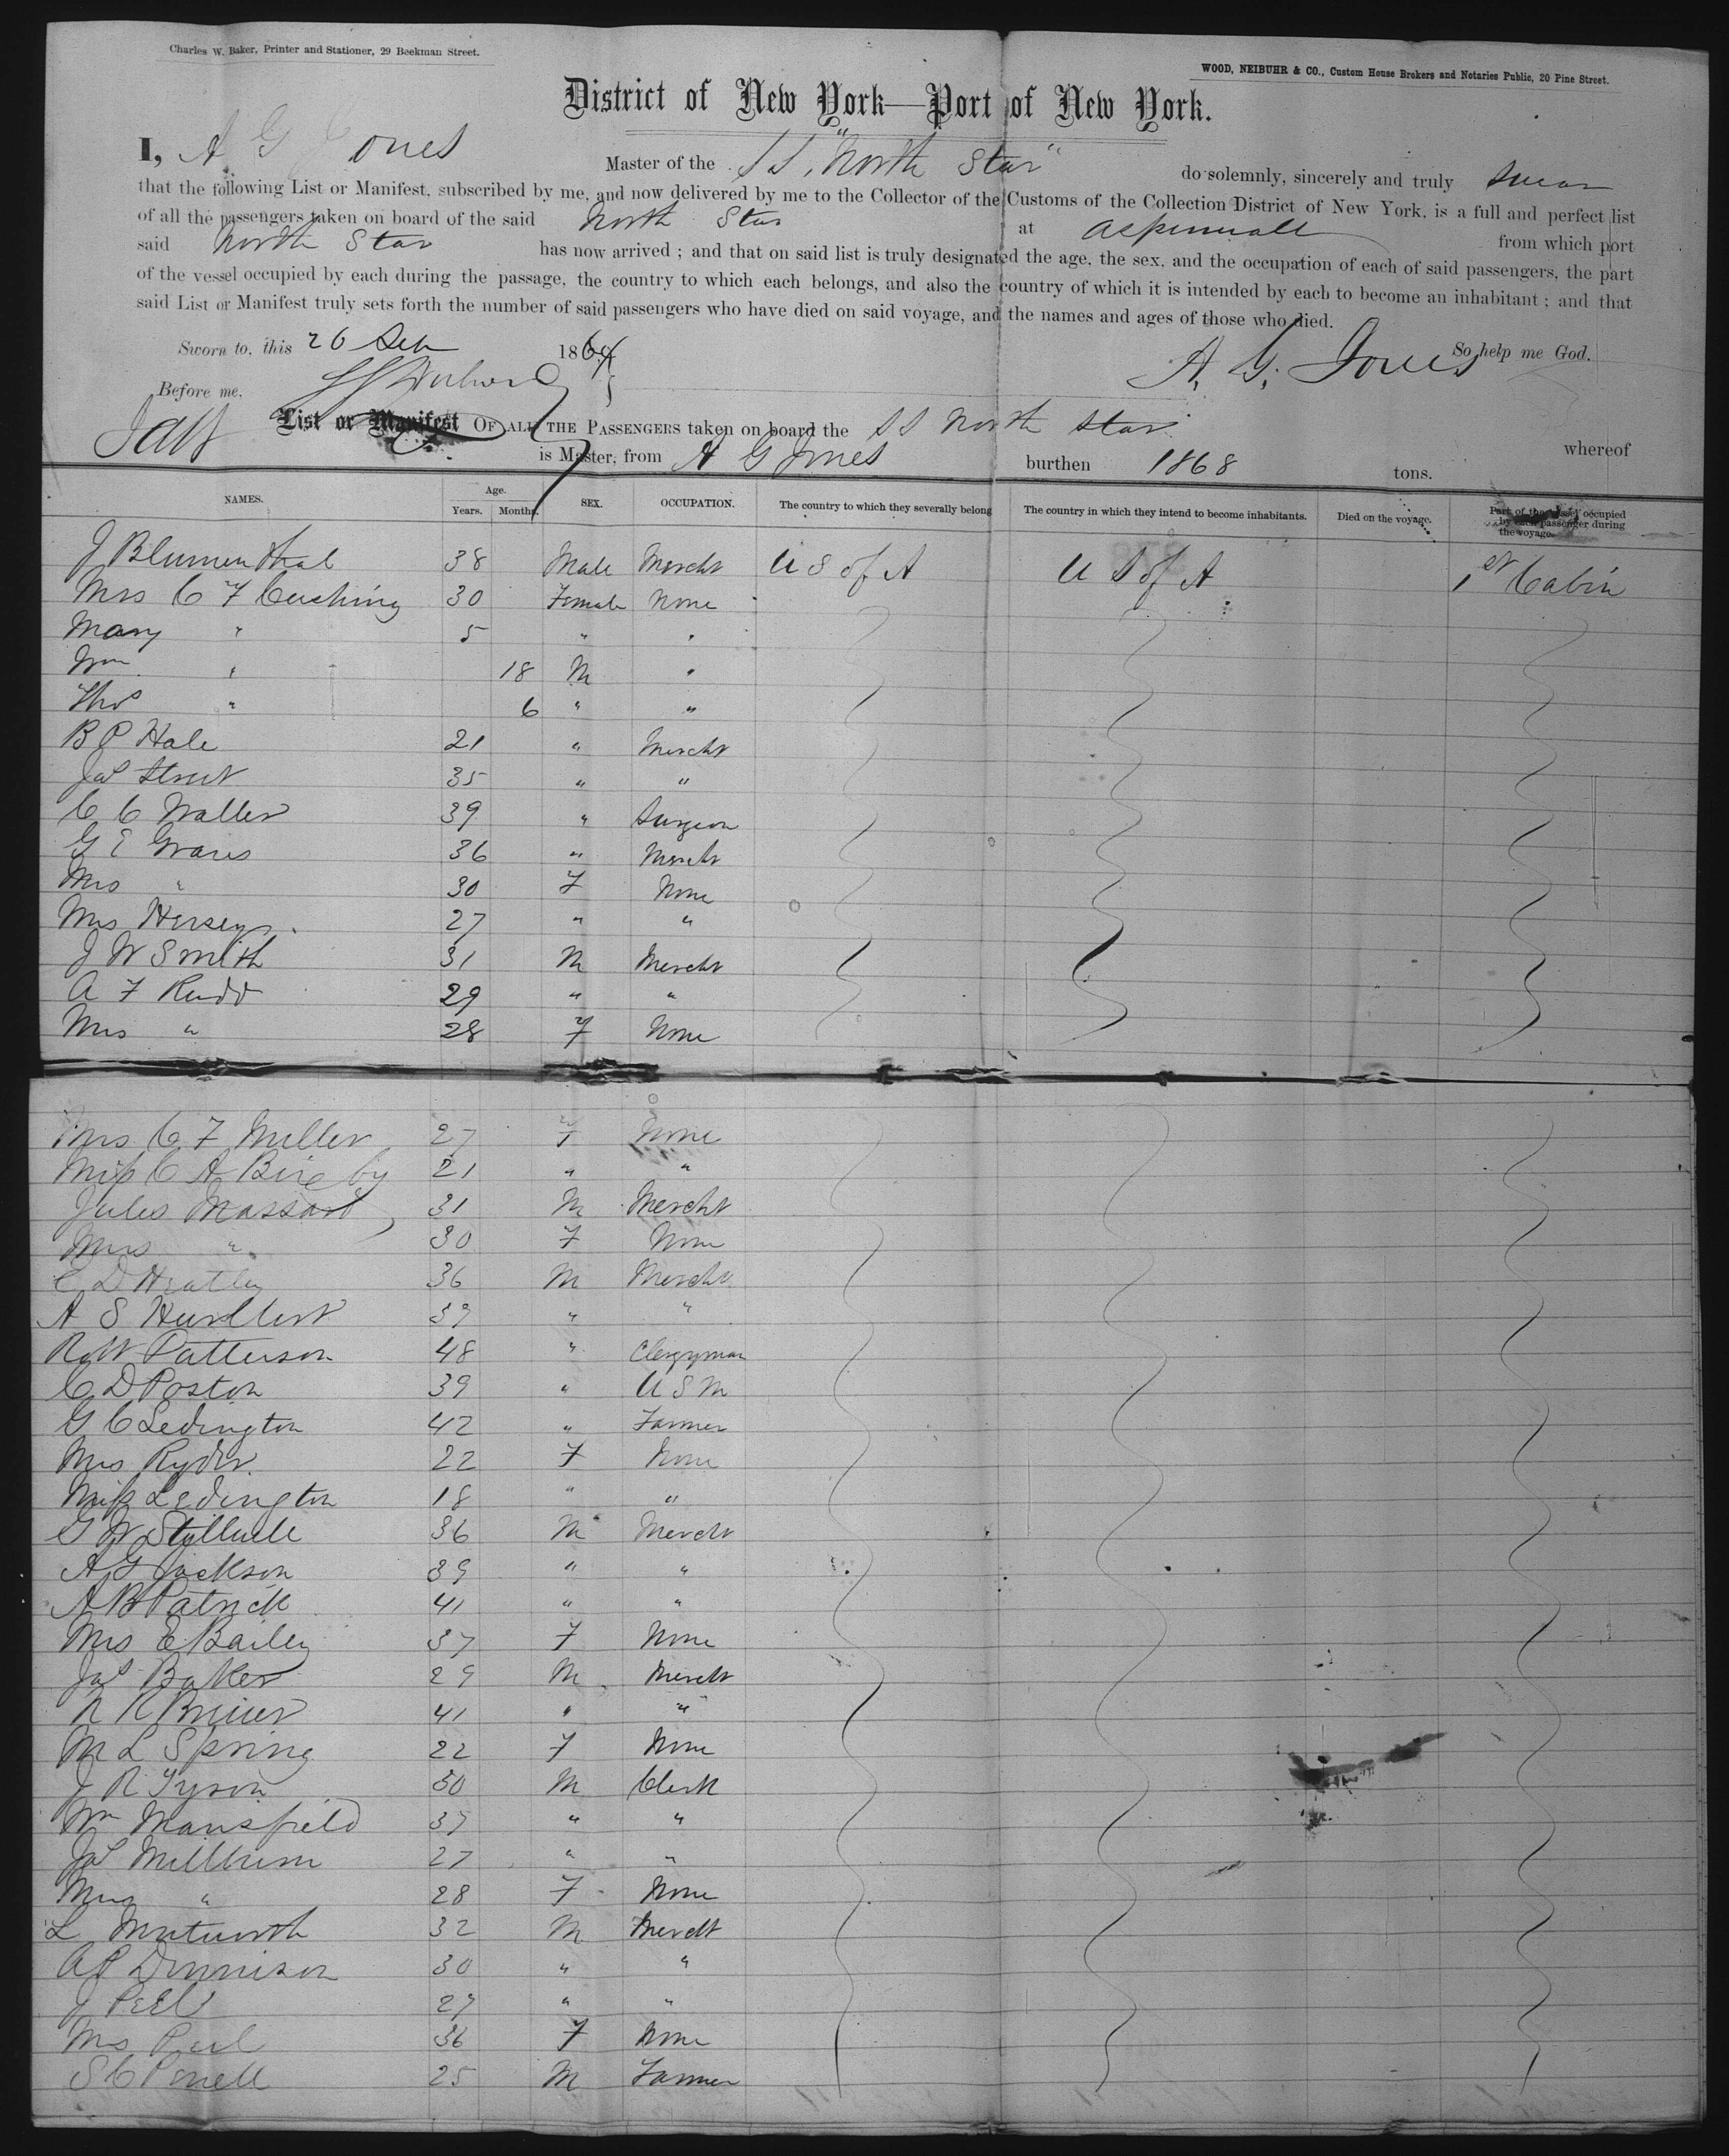 Charles W. Baker, Printer and Stationer, 29 Beekman Street.
WOOD, NEIBUHR & CO., Custom House Brokers and Notaries Public, 20 Pine Street.
District of New York—Port of New York.
I, A G Jones Master of the SS, "North Star" do solemnly, sincerely and truly swear
that the following List or Manifest, subscribed by me, and now delivered by me to the Collector of the Customs of the Collection District of New York, is a full and perfect list
of all the passengers taken on board of the said North Star at Aspinwall from which port
said North Star has now arrived ; and that on said list is truly designated the age, the sex, and the occupation of each of said passengers, the part
of the vessel occupied by each during the passage, the country to which each belongs, and also the country of which it is intended by each to become an inhabitant ; and that
said List or Manifest truly sets forth the number of said passengers who have died on said voyage, and the names and ages of those who died.
Sworn to, this 26 Sep 1864 So help me God.
A. G. Jones
Before me,
List or Manifest OF ALL THE PASSENGERS taken on board the SS North Star whereof
is Master, from A G Jones burthen 1868 tons.
NAMES. Age. Years. Months. SEX. OCCUPATION. The country to which they severally belong The country in which they intend to become inhabitants. Died on the voyage. Part of the vessel occupied by each passenger during the voyage.
J Blumenthal 38 Male Mercht U S of A U S of A 1st Cabin
Mrs C F Cushing 30 Female None
Mary " 5 " "
Wm " 18 M "
Thos " 6 " "
B P Hale 21 " Mercht
Jas Street 35 " "
C C Waller 39 " Surgeon
G E Graves 36 " Mercht
Mrs " 30 F None
Mrs Hersey 27 " "
J W Smith 31 M Mercht
A F Rudd 29 " "
Mrs " 28 F None
Mrs C F Miller 27 F None
Miss C A 21 " "
Jules Massard 31 M Mercht
Mrs " 30 F None
C D Heatley 36 M Mercht
A S Hurlburt 39 " "
Robt Patterson 48 " Clergyman
C D Poston 39 " U S M
G C Ledington 42 " Farmer
Mrs Ryder 22 F None
Miss Ledington 18 " "
G W 36 M Mercht
A G Jackson 39 " "
A B Patrick 41 " "
Mrs E Bailey 37 F None
Jas Baker 29 M Mercht
41 " "
M L Spring 22 F None
J R Tyson 50 M Clerk
Wm Mansfield 37 " "
Jas 27 " "
Mrs " 28 F None
L 32 M Mercht
A P Dennison 30 " "
J Peel 27 " "
Mrs Peel 36 F None
S C 25 M Farmer